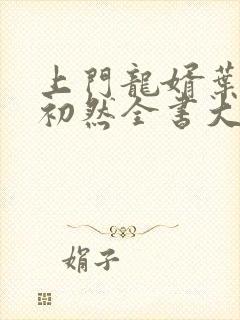 上門龍婿葉
初然全書大
娟子